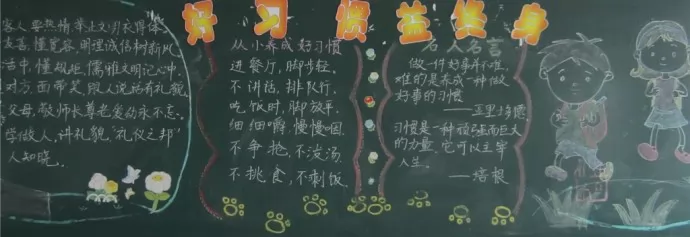 好习惯益终身
客人要热情,举止文明衣得体。
友善,懂宽容,明理诚信树新风
活中,懂
儒雅文明记心中.
对方,面带笑,跟人说话有礼貌
父母,敬师长尊老爱幼永不忘。
学做人,讲礼貌,“礼仪之邦”
人知晓。
从小养成好习惯
进餐厅,脚步轻。
不讲话,排队行.
吃饭时,脚放平.
细细嚼,慢慢咽.
不争抢,不泼汤.
不挑食,不剩饭.
名人名言
做一件好事并不难,
难的是养成一种做
好事的习惯
——亚里
德
习惯是一种顽强而巨大
的力量,它可以主宰
人生。
——培根